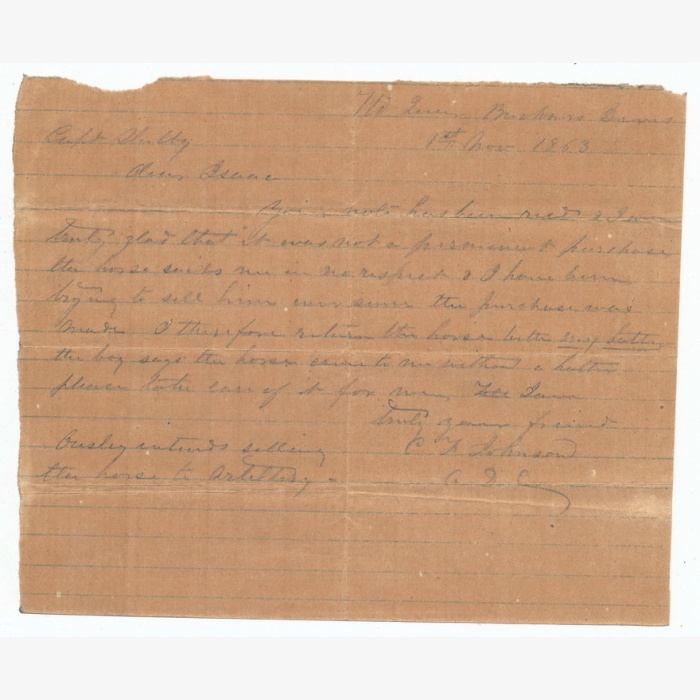 Hd Qurs Buckners Divis
1st Nov 1863
Capt Shelby
Dear Isaac
Your note has been recd & I am
truly glad that it was not a permanent purchase
the horse suits me in no respect & I have been
trying to sell him ever since the purchase was
made I therefore return the horse with my halter
the boy says the horse came to me without a halter
please take care of it for me I am
truly your friend
C F Johnson
A D C
Ousley intends selling
the horse to Artillery